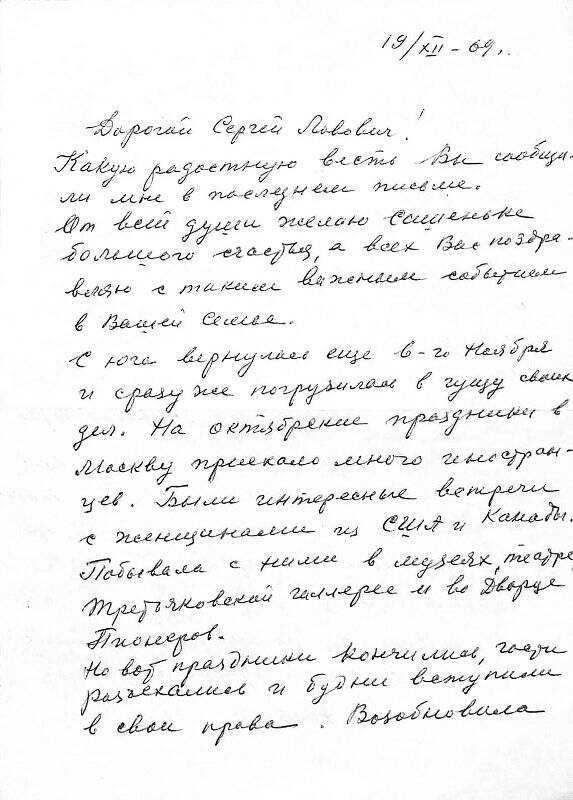 19/XII-69.
Дорогой Сергей Львович!
Какую радостную весть Вы сообщи-
ли мне в последнем письме.
От всей души желаю Сашеньке
большого счастья, а всех Вас поздра-
вляю с таким важным событием
в Вашей семье.
С юга вернулась еще 6-го Ноября
и сразу же погрузилась в гущу своих
дел. На октябрьские праздники в
Москву приехало много иностран-
цев. Были интересные встречи
с женщинами из США и Канады.
Побывала с ними в музеях, театре,
Третьяковской галлерее и во Дворце
Пионеров.
Но вот праздники кончились, гости
разъехались и будни вступили
в свои права. Возобновила